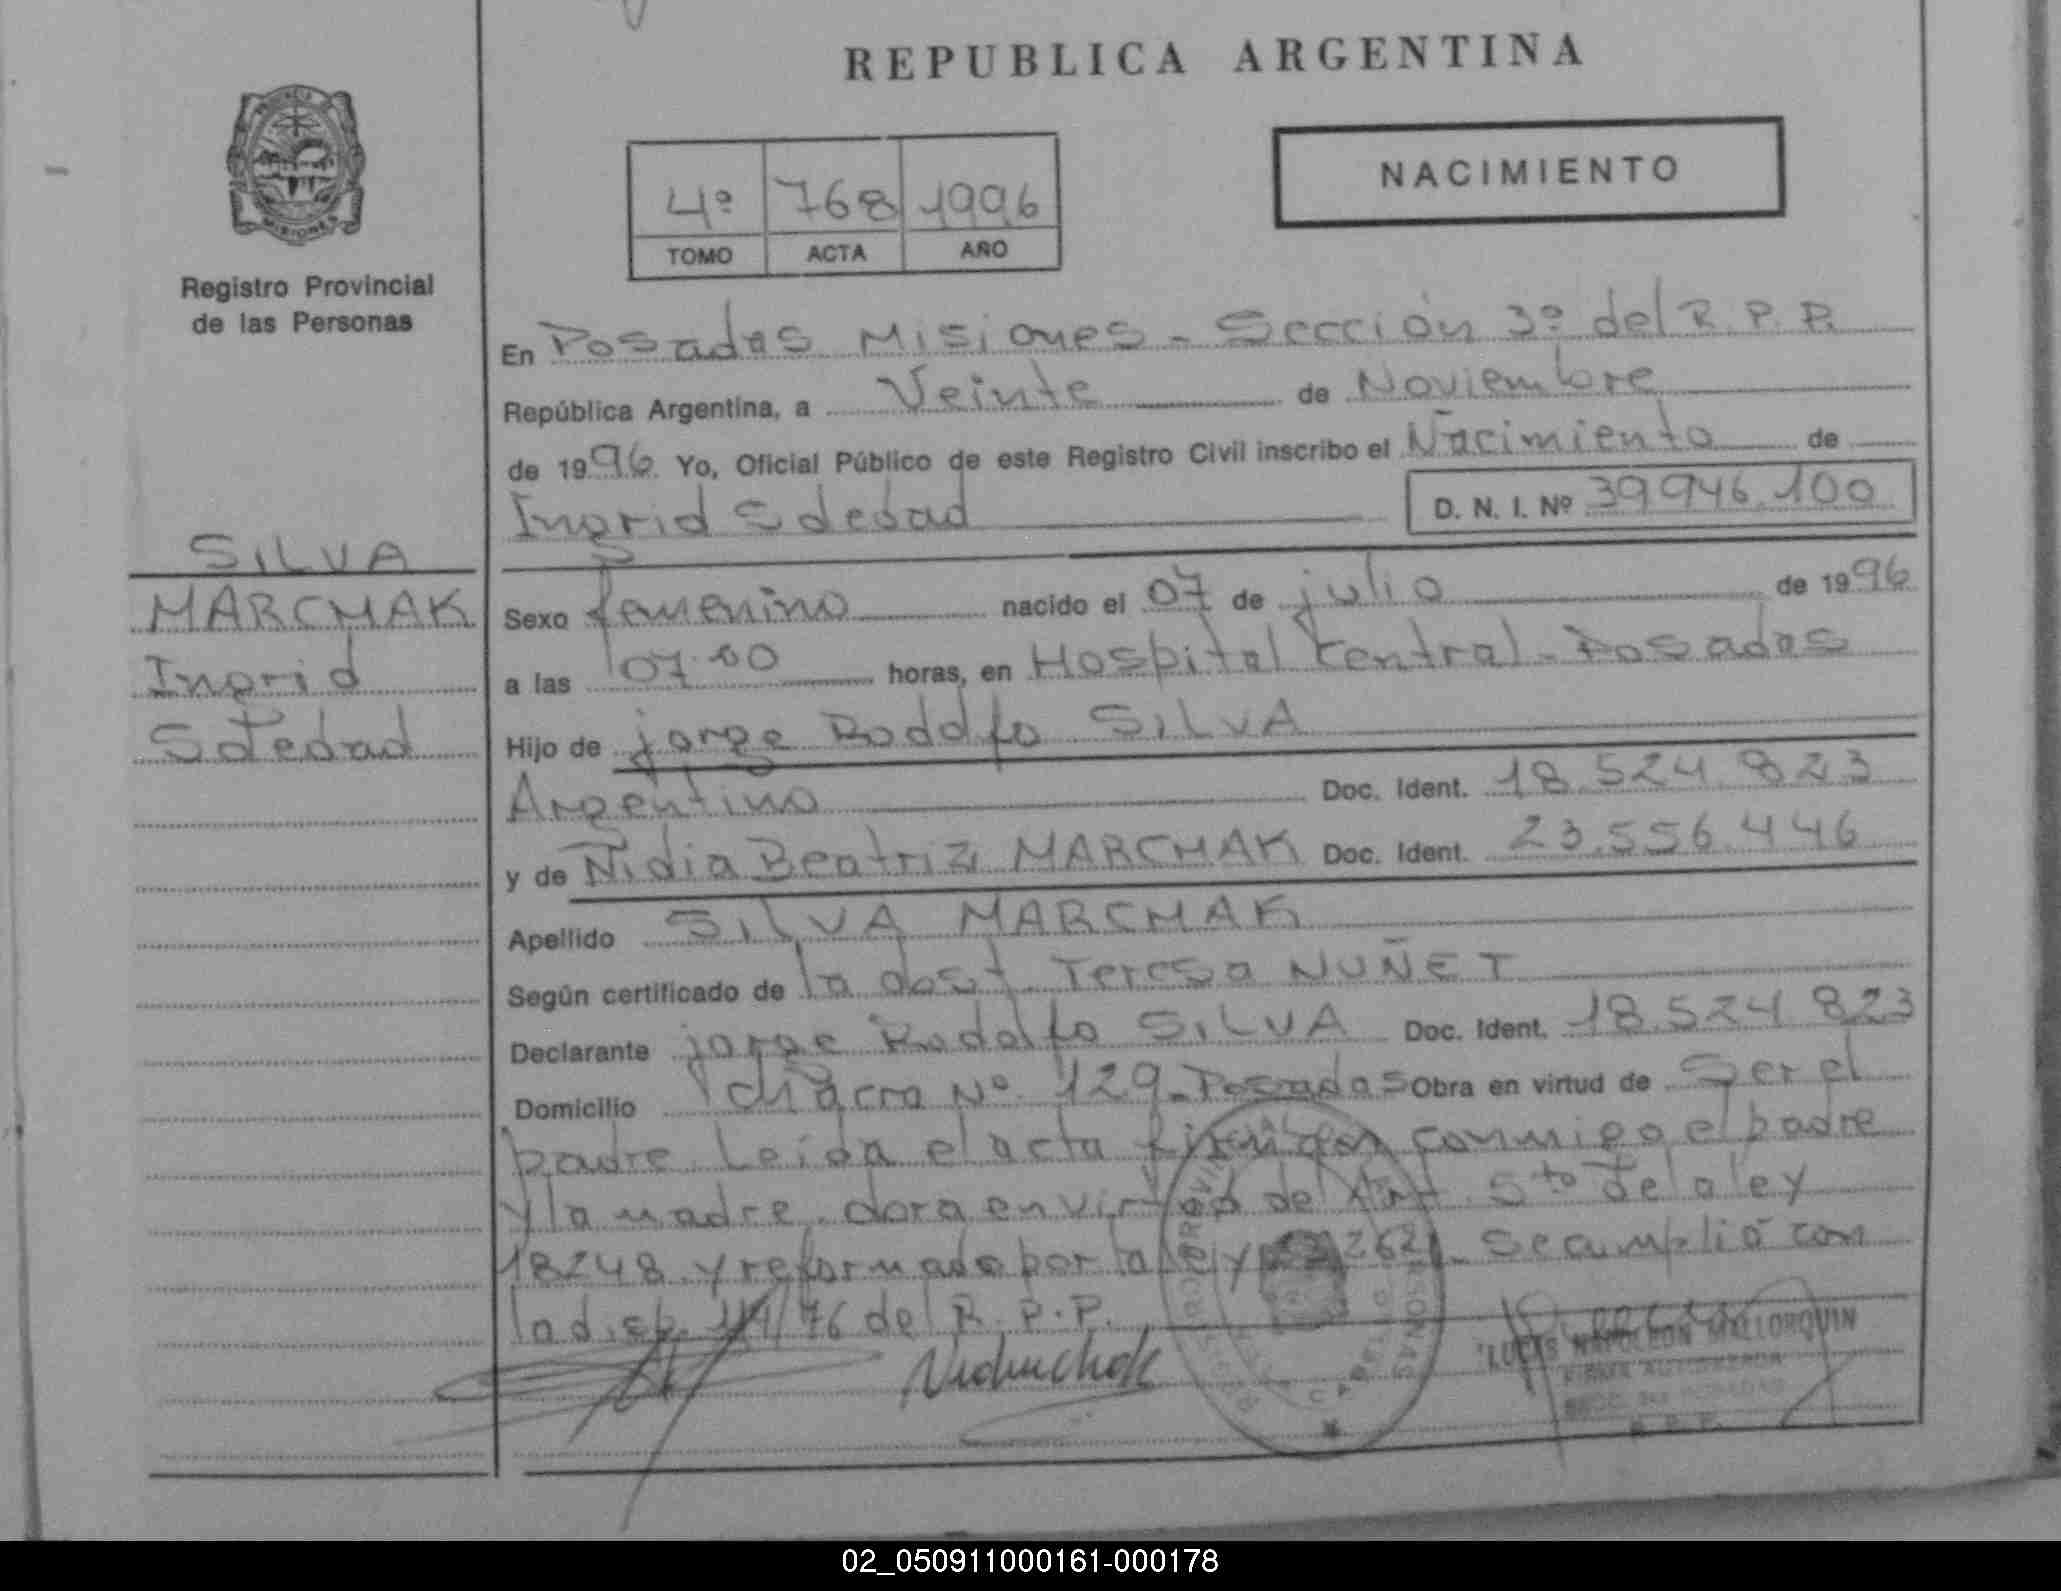 REPUBLICA ARGENTINA
PROVINCIA
MISIONES
Registro Provincial
de las Personas
4º 768 1996
TOMO ACTA AÑO
NACIMIENTO
En Posadas Misiones - Sección 3º del R.P.P.
República Argentina, a Veinte de Noviembre
de 1996. Yo, Oficial Público de este Registro Civil inscribo el Nacimiento de
Ingrid Soledad D. N. I. Nº 39.946.100
SILVA
MARCHAK
Ingrid
Soledad
Sexo femenino nacido el 07 de julio de 1996
a las 07.00 horas, en Hospital Central - Posadas
Hijo de jorge Rodolfo SILVA
Argentino Doc. Ident. 18.524.823
y de Nidia Beatriz MARCHAK Doc. Ident. 23.556.446
Apellido SILVA MARCHAK
Según certificado de la obst. Teresa NUÑET
Declarante jorge Rodolfo SILVA Doc. Ident. 18.524.823
Domicilio chacra Nº 129 - Posadas Obra en virtud de Ser el
padre. Leída el acta firman conmigo el padre
y la madre. en virtud del Art. 5to de la ley
18248 y reformado por la ley Se cumplió con
la disp. /76 del R.P.P.
LUCAS NAPOLEON MALLORQUIN
FIRMA AUTORIZADA
R.P.P.
02_050911000161-000178